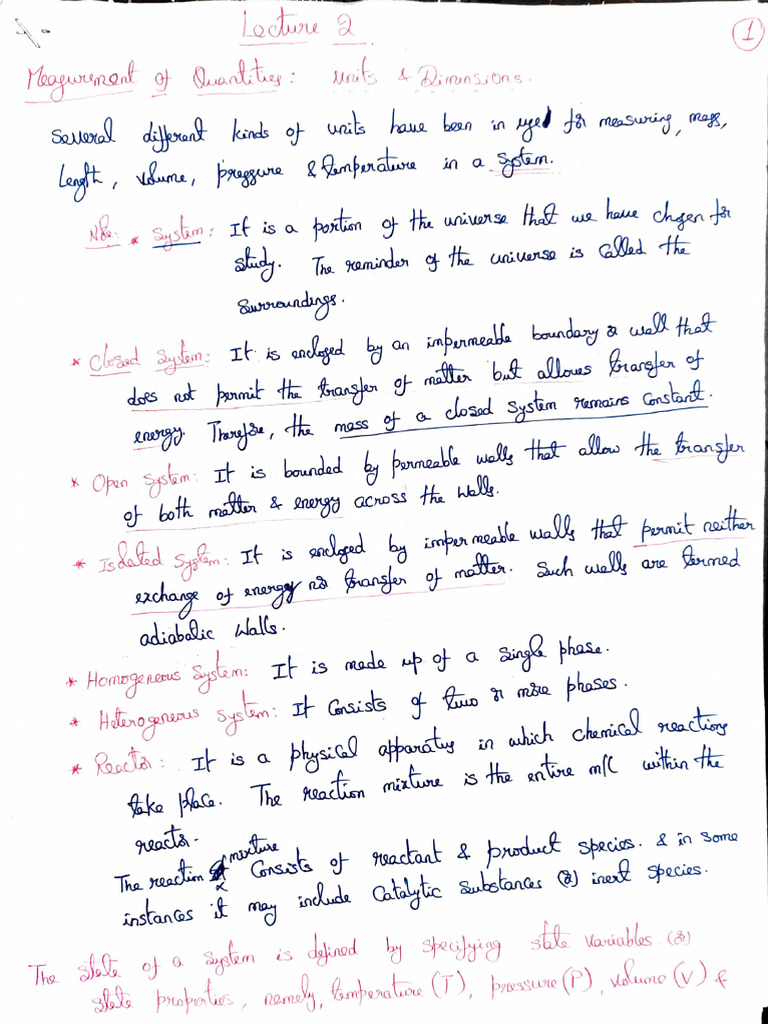 Lecture 2
1
Measurement of Quantities: Units & Dimensions.
Several different kinds of units have been in use for measuring, mass,
length, volume, pressure & temperature in a system.
Note: * System: It is a portion of the universe that we have chosen for
study. The reminder of the universe is called the
surroundings.
* Closed System: It is enclosed by an impermeable boundary or wall that
does not permit the transfer of matter but allows transfer of
energy. Therefore, the mass of a closed system remains constant.
* Open System: It is bounded by permeable walls that allow the transfer
of both matter & energy across the walls.
* Isolated System: It is enclosed by impermeable walls that permit neither
exchange of energy nor transfer of matter. Such walls are termed
adiabalic walls.
* Homogeneous System: It is made up of a single phase.
* Heterogeneous System: It consists of two or more phases.
* Reactor: It is a physical apparatus in which chemical reactions
take place. The reaction mixture is the entire m/c within the
reactor.
The reaction mixture consists of reactant & product species. & in some
instances it may include catalytic substances (or) inert species.
The state of a system is defined by specifying state variables (or)
state properties, namely, temperature (T), pressure (P), volume (V) &